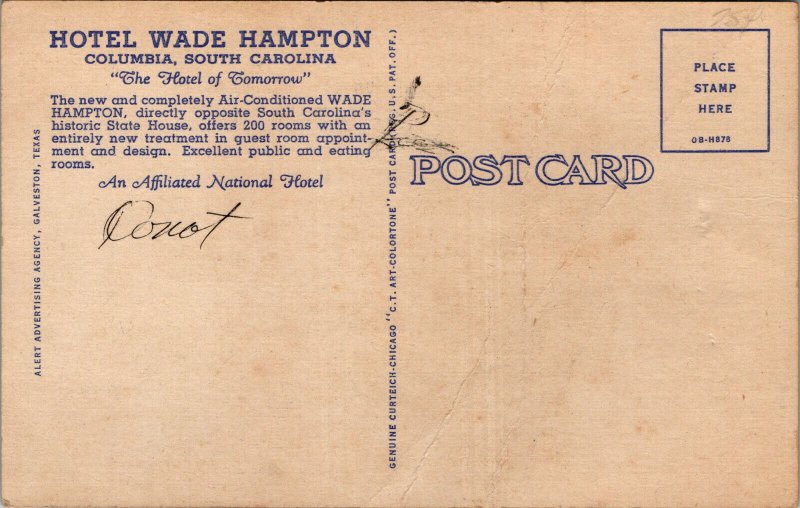 HOTEL WADE HAMPTON
COLUMBIA, SOUTH CAROLINA
"The Hotel of Tomorrow"
The new and completely Air-Conditioned WADE
HAMPTON, directly opposite South Carolina's
historic State House, offers 200 rooms with an
entirely new treatment in guest room appoint-
ment and design. Excellent public and eating
rooms.
An Affiliated National Hotel
ALERT ADVERTISING AGENCY, GALVESTON, TEXAS
GENUINE CURTEICH-CHICAGO "C.T. ART-COLORTONE" POST CARD U.S. PAT. OFF.)
POST CARD
PLACE
STAMP
HERE
OB-H878